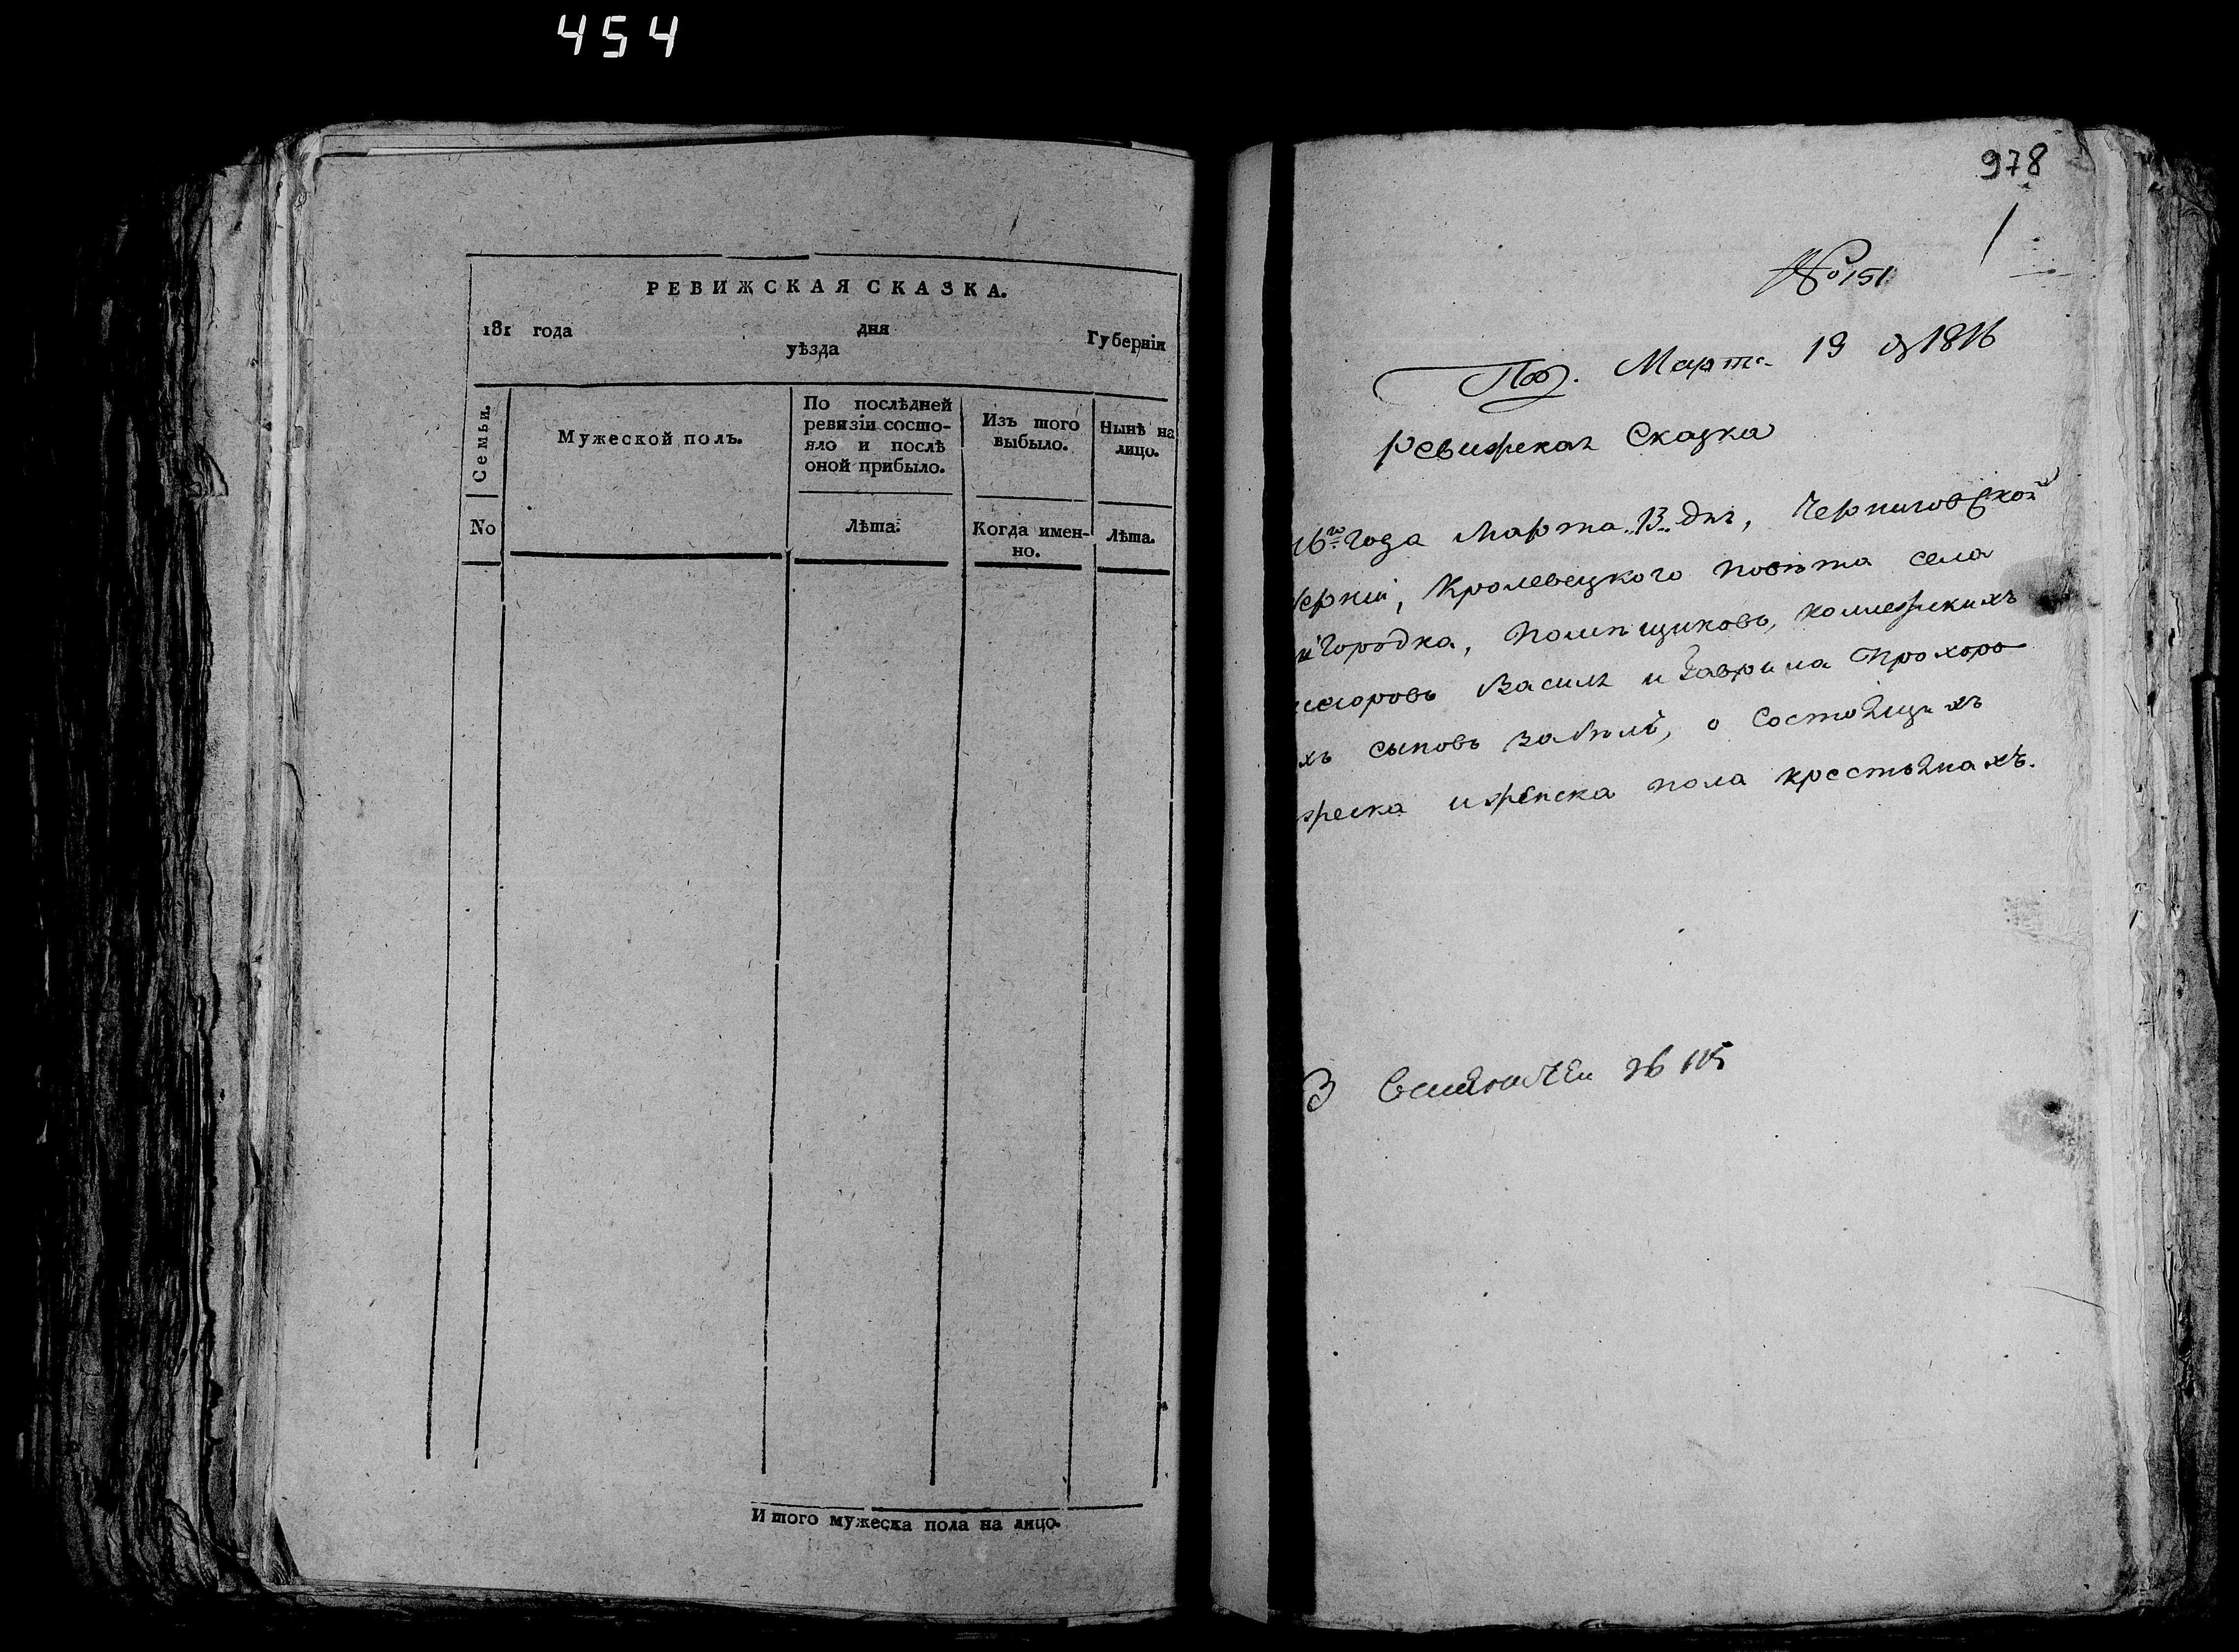 454
РЕВИЖСКАЯ СКАЗКА.
181 года дня Губерніи
уѣзда
Семьи.
Мужеской полъ.
По послѣдней
ревизіи состо-
яло и послѣ
оной прибыло.
Изъ того
выбыло.
Нынѣ на
лицо.
No
Лѣта.
Когда имен-
но.
Лѣта.
Итого мужеска пола на лицо.
978
№ 151
Марта 19 1816
ревижская Сказка
16го года Марта 13 дня, Черниговской
ерніи, Кролевецкого повѣта села
городка, помѣщиковъ, коллежскихъ
Василя и Гаврила Прохоро
хъ сыновъ Забѣлъ, о состоящихъ
жеска и женска пола крестьянахъ.